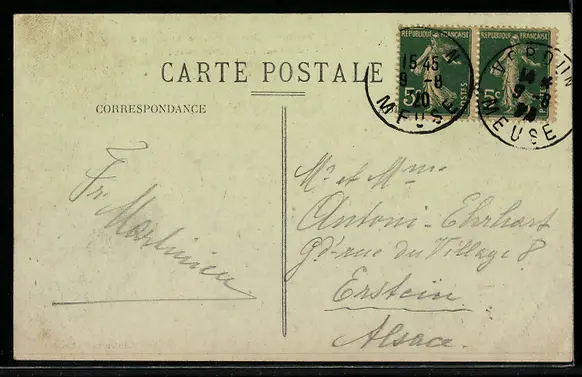 REPUBLIQUE FRANÇAISE
REPUBLIQUE FRANÇAISE
5c POSTES
5c POSTES
15 45
9 -8
20
MEUSE
VERDUN
9 -8
MEUSE
CARTE POSTALE
CORRESPONDANCE
Fr.
Mr et Mme
Antoni-Ehrhart
Gd'rue du Village 8
Erstein
Alsace.